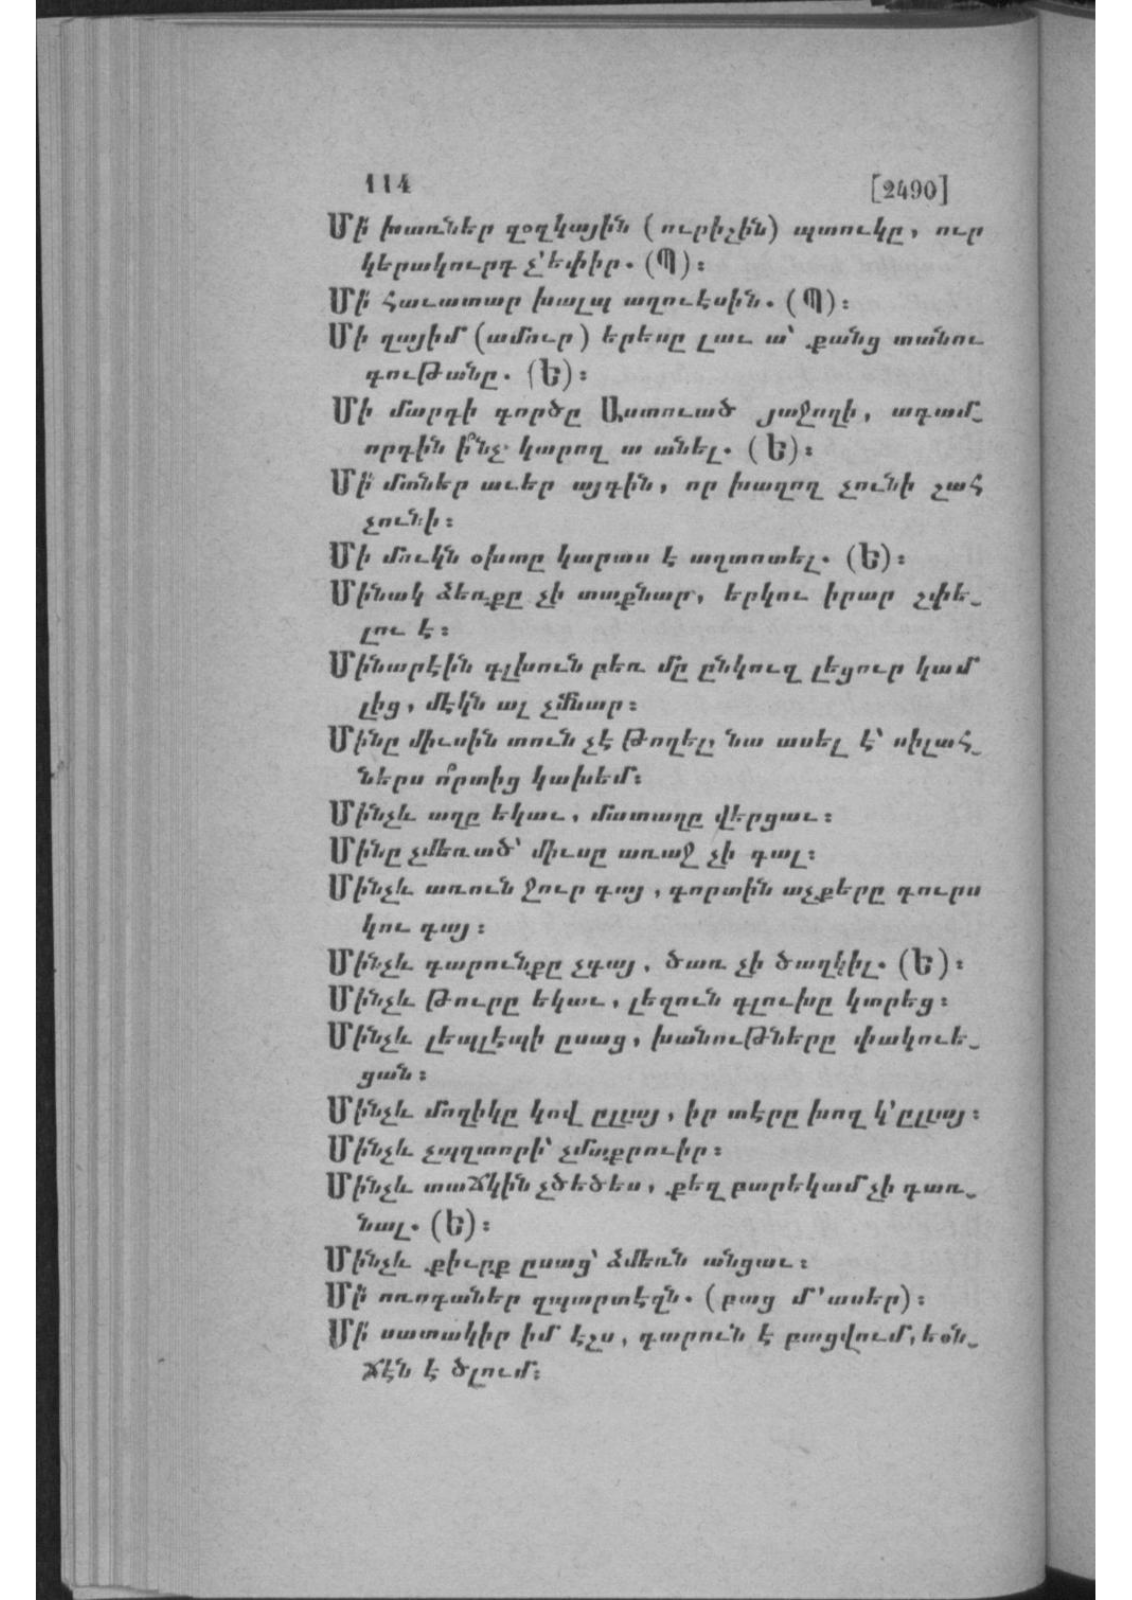 114 [2490]
Մի՛ խառներ զօզկային (ուրիշին) պտուկը, ուր
կերակուրդ չ՚եփիր. (Պ)։
Մի՛ հաւատար խալպ աղուէսին. (Պ)։
Մի ղայիմ (ամուր) երեսը լաւ ա՝ քանց տանու
գութանը. (Ե)։
Մի մարդի գործը Աստուած յաջողի, ադամ-
որդին ի՞նչ կարող ա անել. (Ե)։
Մի՛ մտներ աւեր այգին, որ խաղող չունի շահ
չունի։
Մի մուկն օխտը կարաս է աղտոտել. (Ե)։
Մինակ ձեռքը չի տաքնար, երկու իրար շփե-
լու է։
Մինարէին գլխուն բեռ մը ընկուզ լեցուր կամ
լից, մէկն ալ չմնար։
Մինը միւսին տուն չէ թողել, նա ասել է՝ սիլահ-
ներս ո՞րտից կախեմ։
Մինչև աղը եկաւ, մատաղը վերցաւ։
Մինը չմեռած՝ միւսը առաջ չի գալ։
Մինչև առուն ջուր գայ, գորտին աչքերը դուրս
կու գայ։
Մինչև գարունքը չգայ, ծառ չի ծաղկիլ. (Ե)։
Մինչև թուրը եկաւ, լեզուն գլուխը կտրեց։
Մինչև լեպլէպի ըսաց, խանութները փակուե-
ցան։
Մինչև մոզիկը կով ըլլայ, իր տէրը խող կ՚ըլլայ։
Մինչև չպղտորի՝ չմաքրուիր։
Մինչև տաճկին չծեծես, քեզ բարեկամ չի դառ-
նալ. (Ե)։
Մինչև քիւրք ըսաց՝ ձմեռն անցաւ։
Մի՛ ոռոգաներ զպարտէզն. (բաց մ՚ասեր)։
Մի՛ սատակիր իմ էշս, գարուն է բացվում, եօն-
ճէն է ծլում։